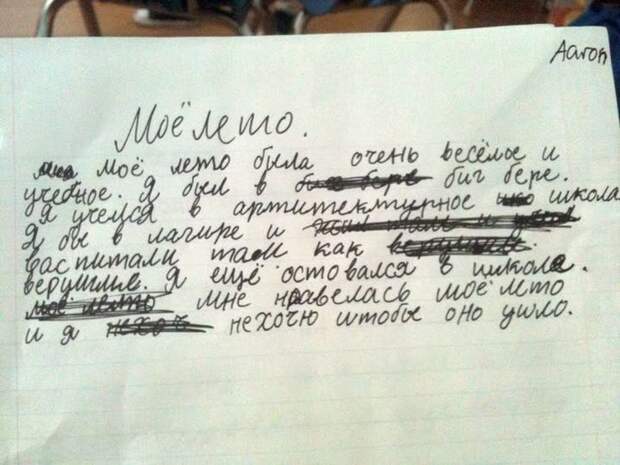 Aaron
Моё лето.
моё лето была очень весёлое и
учебное. Я был в биг бере.
Я учелся в артитектурное школа
Я бы в лагире и
распитали там как
верушие. Я ещё оставался в школе.
моё лето мне нравелась моё лето
и я нехоч нехочю штобы оно ушло.